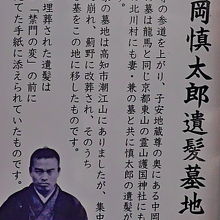 岡慎太郎遺髪墓地
の参道を上がり、子安地蔵尊の奥にある中岡
墓は龍馬と同じ京都東山の霊山護国神社にも
北川村にも妻・兼の墓と共に慎太郎の遺髪が
墓は高知市潮江山にありましたが、集中
崩れ、薊野に改葬され、そのうち
基をこの地に移したものです。
埋葬された遺髪は
「禁門の変」の前に
てた手紙に添えられていたものです。